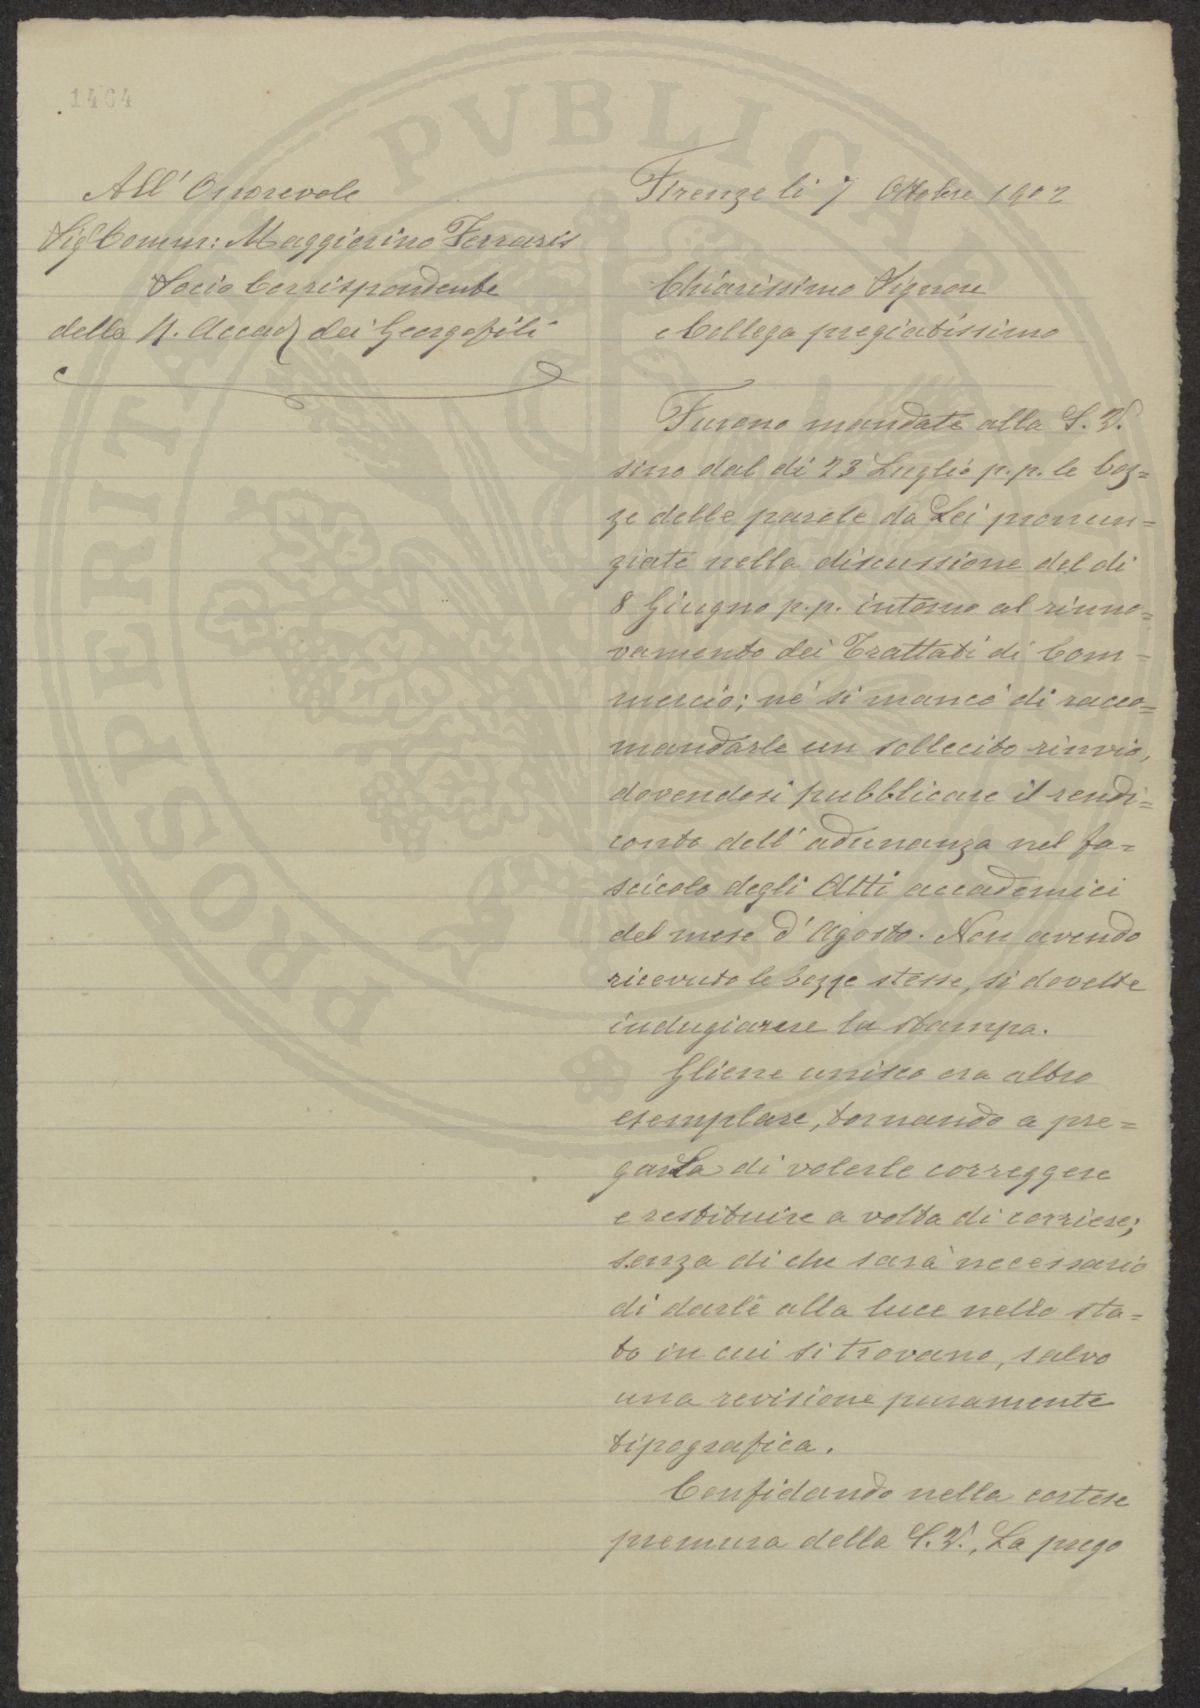 1464
All' Onorevole
Sig. Comm: Maggiorino Ferraris
Socio Corrispondente
della R. Accad. dei Georgofili
Firenze li 7 Ottobre 1902
Chiarissimo Signore
e Collega pregiatissimo
Furono mandate alla S. V.
sino dal di 23 Luglio p.p. le boz=
ze delle parole da Lei pronun=
ziate nella discussione del di
8 Giugno p.p. intorno al rinno=
vamento dei Trattati di Com=
mercio; nè si mancò di racco=
mandarle un sollecito rinvio,
dovendosi pubblicare il rendi=
conto dell' adunanza nel fa=
scicolo degli Atti accademici
del mese d' Agosto. Non avendo
ricevuto le bozze stesse, si dovette
indugiarne la stampa.
Gliene unisco ora altro
esemplare, tornando a pre=
garLa di volerle correggere
e restituire a volta di corriere;
senza di che sarà necessario
di darle alla luce nello sta=
to in cui si trovano, salvo
una revisione puramente
tipografica.
Confidando nella cortese
premura della S. V., La prego
PROSPERITATI PVBLICAE